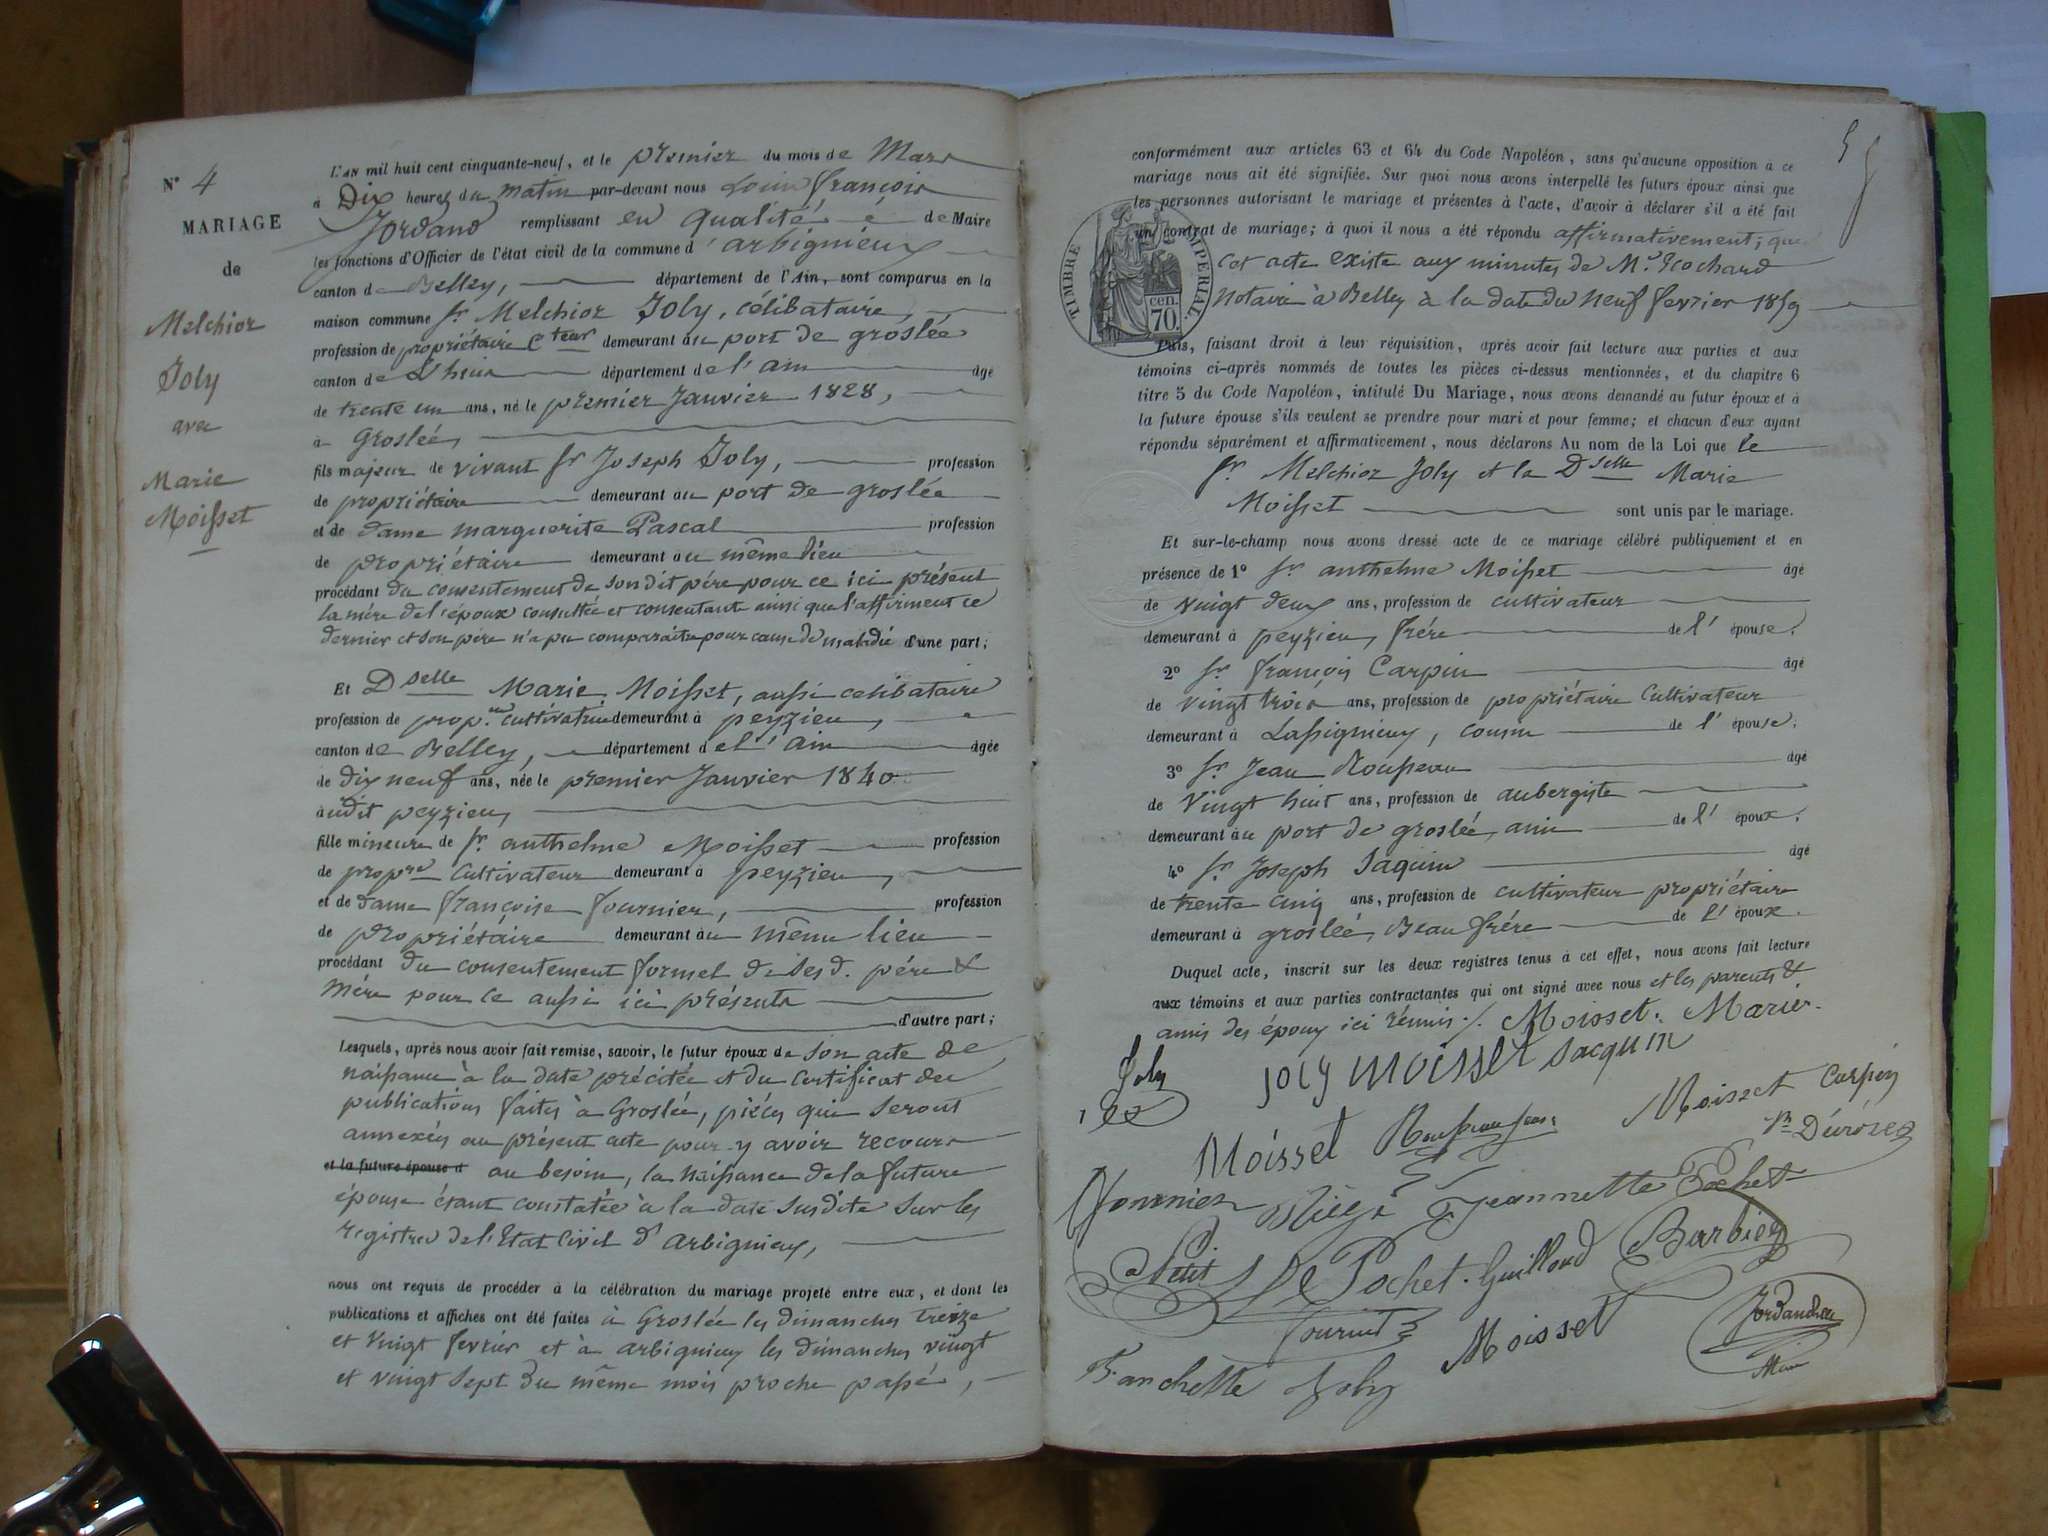 N° 4
MARIAGE
de
Melchior
Joly
avec
Marie
Moisset
L'AN mil huit cent cinquante-neuf, et le premier du mois de Mars
à Dix heures du matin par-devant nous Louis françois
Jordand remplissant en qualité de Maire
les fonctions d'Officier de l'état civil de la commune d'arbignieux
canton de Belley, département de l'Ain, sont comparus en la
maison commune Sr Melchior Joly, célibataire,
profession de propriétaire Cteur demeurant au port de groslée
canton de Lhuis département de l'ain âgé
de trente un ans, né le premier Janvier 1828,
à Groslée,
fils majeur de vivant Sr Joseph Joly, profession
de propriétaire demeurant au port de groslée
et de dame marguerite Pascal profession
de propriétaire demeurant au même lieu
procédant du consentement de son dit père pour ce ici présent
la mère de l'époux consultée et consentante ainsi que l'affirment ce
dernier et son père n'a pu comparaître pour cause de maladie d'une part;
Et Dselle Marie Moisset, aussi celibataire
profession de prop.re cultivatrice demeurant à peyzieu,
canton de Belley, département de l'ain âgée
de dix neuf ans, née le premier Janvier 1840
audit peyzieu,
fille mineure de Sr anthelme Moisset profession
de propre Cultivateur demeurant à peyzieu,
et de dame françoise fournier, profession
de propriétaire demeurant au même lieu
procédant du consentement formel de ses d. père &
mère pour ce aussi ici présents
d'autre part;
Lesquels, après nous avoir fait remise, savoir, le futur époux de son acte de
naissance à la date précitée et du certificat des
publications faites à Groslée, pièces qui seront
annexées au présent acte pour y avoir recours
et la future épouse d au besoin, la naissance de la future
épouse étant constatée à la date susdite sur les
registres de l'Etat Civil d'Arbignieux,
nous ont requis de procéder à la célébration du mariage projeté entre eux, et dont les
publications et affiches ont été faites à Groslée les dimanches treize
et vingt fevrier et à arbignieux les dimanches vingt
et vingt sept du même mois proche passé,
conformément aux articles 63 et 64 du Code Napoléon, sans qu'aucune opposition à ce
mariage nous ait été signifiée. Sur quoi nous avons interpellé les futurs époux ainsi que
les personnes autorisant le mariage et présentes à l'acte, d'avoir à déclarer s'il a été fait
un contrat de mariage; à quoi il nous a été répondu affirmativement; que
cet acte existe aux minutes de Me Trochard
Notaire à Belley à la date du neuf fevrier 1859
TIMBRE IMPERIAL.
cen.
70.
Puis, faisant droit à leur réquisition, après avoir fait lecture aux parties et aux
témoins ci-après nommés de toutes les pièces ci-dessus mentionnées, et du chapitre 6
titre 5 du Code Napoléon, intitulé Du Mariage, nous avons demandé au futur époux et à
la future épouse s'ils veulent se prendre pour mari et pour femme; et chacun d'eux ayant
répondu séparément et affirmativement, nous déclarons Au nom de la Loi que le
Sr. Melchior Joly et la Dselle Marie
Moisset sont unis par le mariage.
Et sur-le-champ nous avons dressé acte de ce mariage célébré publiquement et en
présence de 1° Sr anthelme Moisset âgé
de vingt deux ans, profession de cultivateur
demeurant à peyzieu, frère de l'épouse.
2° Sr françois Carpin âgé
de vingt trois ans, profession de propriétaire Cultivateur
demeurant à Lassignieux, cousin de l'épouse.
3° Sr Jean Rousseau âgé
de Vingt huit ans, profession de aubergiste
demeurant au port de groslée, ami de l'époux.
4° Sr Joseph Jaquin âgé
de trente cinq ans, profession de cultivateur propriétaire
demeurant à groslée, Beau frère de l'époux.
Duquel acte, inscrit sur les deux registres tenus à cet effet, nous avons fait lecture
aux témoins et aux parties contractantes qui ont signé avec nous et les parents &
amis des époux ici réunis ./. Moisset. Marie.
Joly
JOLY MOISSET Jacquin
Moisset Carpin
Moisset Rousseau Jean
Dürozez
Fournier Jeannette Pochet
Petit Pochet. Guilloud Barbier
Tournet Moisset Jordand
Maire
Fanchette Joly